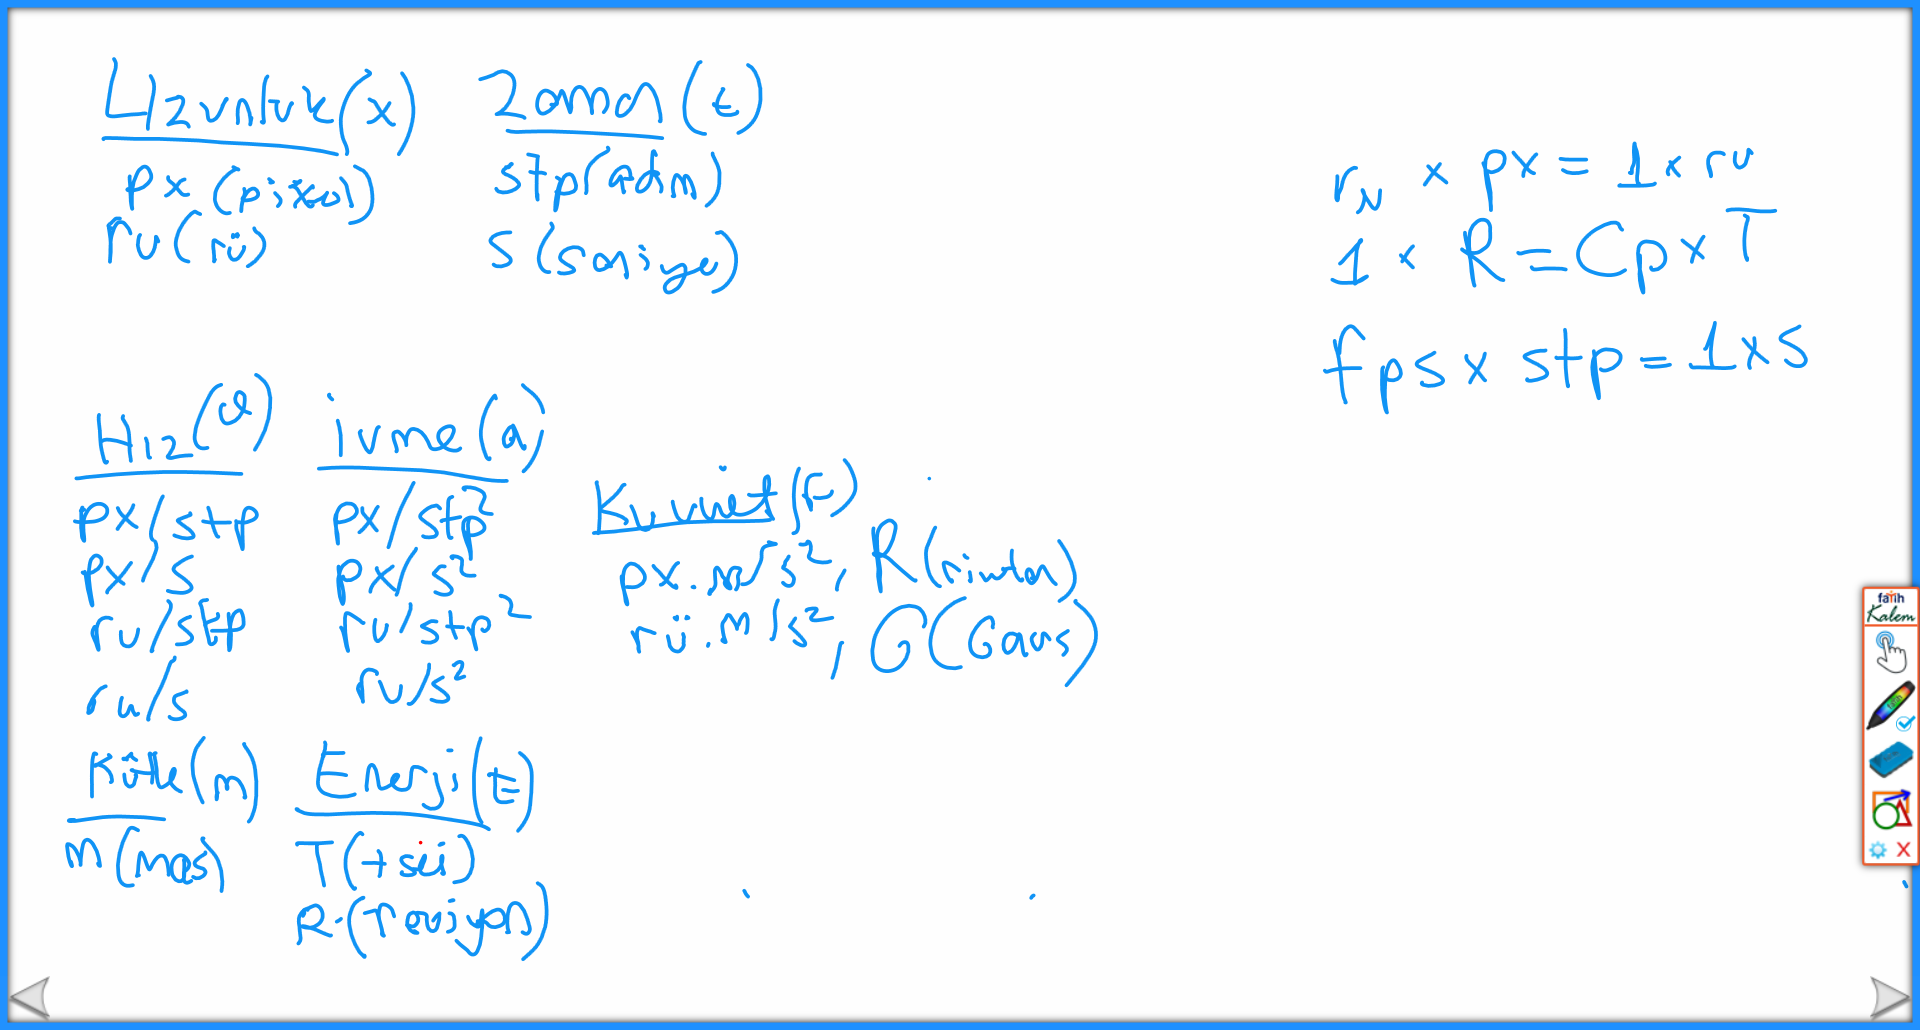 Uzunluk(x)
px (pixel)
ru (rü)
Zaman (t)
stp(adım)
s (saniye)
r_N × px = 1 × ru
1 × R = Cp × T
fps × stp = 1 × s
Hız(v)
px/stp
px/s
ru/stp
ru/s
ivme (a)
px/stp²
px/s²
ru/stp²
ru/s²
Kuvvet (F)
px.m/s², R(rinton)
rü.m/s², G(Gaus)
Kütle(m)
m (mas)
Enerji(E)
T(tsii)
R.(Revisyon)
fatih
Kalem